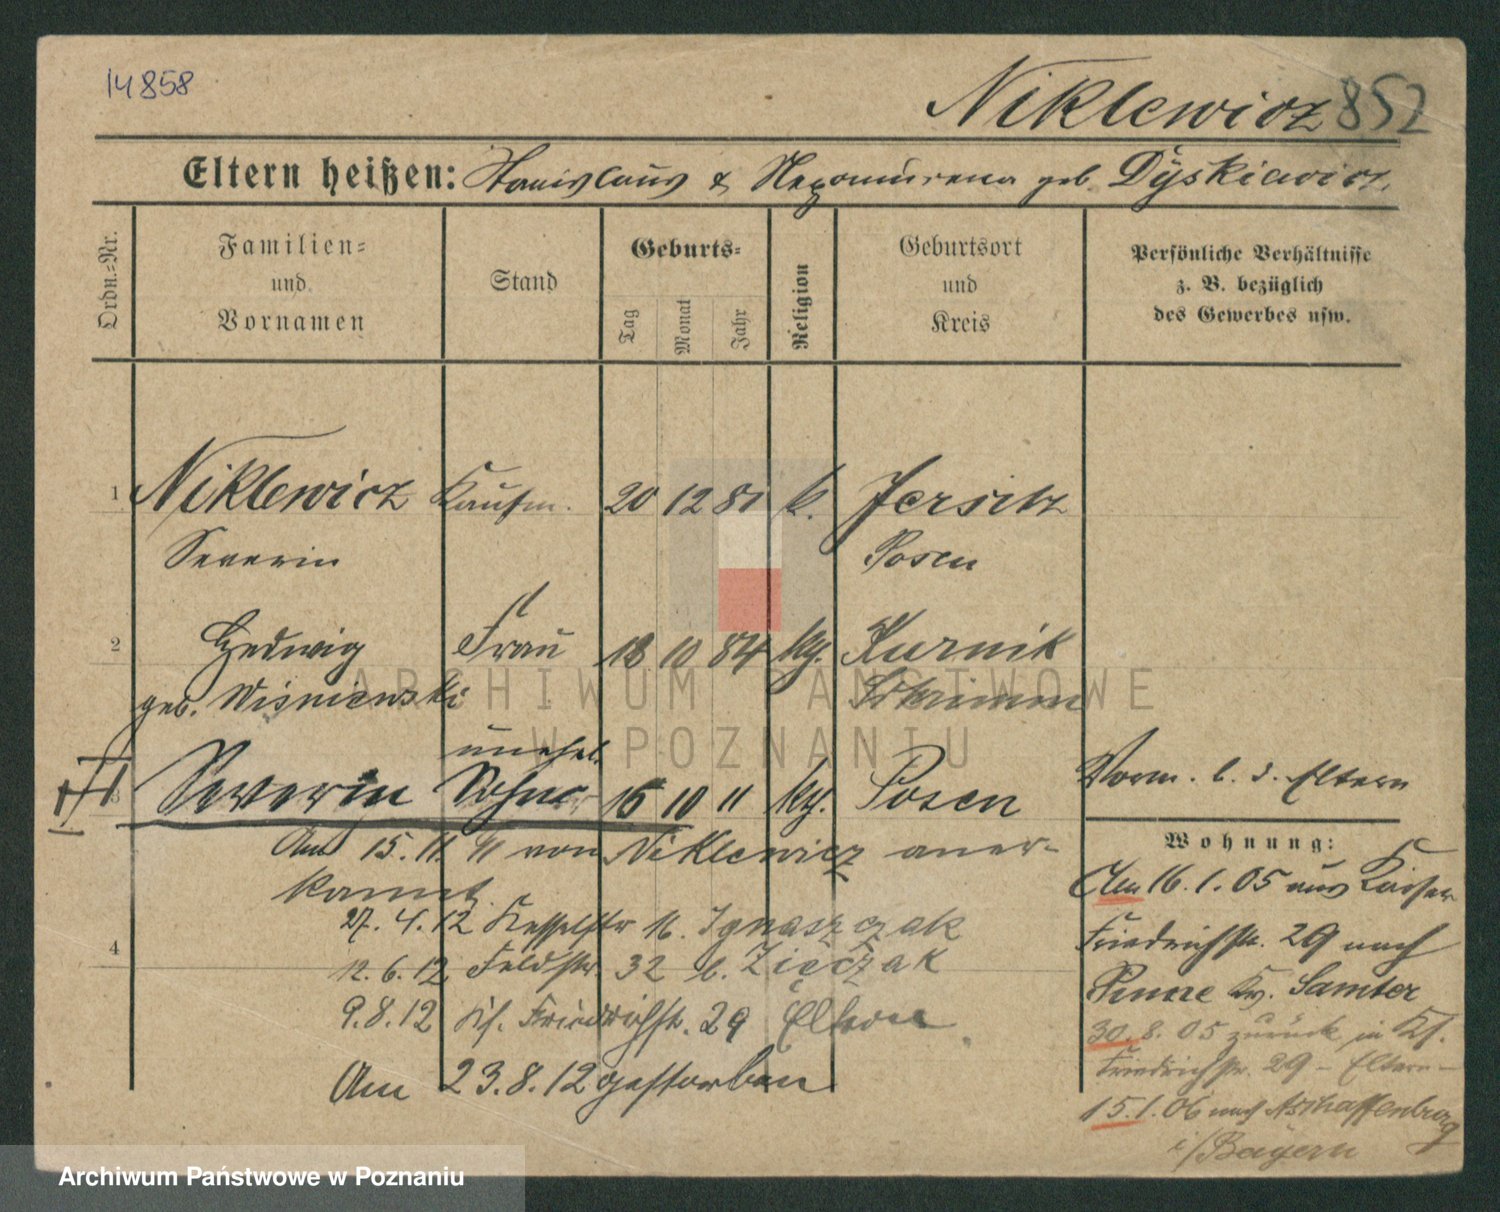 14858
Niklewicz 852
Eltern heißen: Stanislaus & Nepomucena geb. Dyskiewicz
Ordn.=Nr.
Familien=
und
Vornamen
Stand
Geburts=
Tag
Monat
Jahr
Religion
Geburtsort
und
Kreis
Persönliche Verhältnisse
z. B. bezüglich
des Gewerbes usw.
1 Niklewicz Kaufm. 20 12 81 k. Jersitz
Severin Posen
2 Hedwig Frau 18 10 84 kg. Kurnik
geb. Wisniewski Schrimm
unehel.
3 Severin Sohn 15 10 11 kg. Posen Vorm. b. d. Eltern
Am 15. 11. 11 von Niklewicz aner-
kannt.
27. 4. 12 Kesselstr 16. Ignaszczak
4
12. 6. 12 Feldstr. 32 b. Zięczak
9. 8. 12 Ks. Friedrichstr. 29 Eltern
Am 23. 8. 12 gestorben
Wohnung:
Am 16. 1. 05 aus Kaiser
Friedrichstr. 29 nach
Pinne Kr. Samter
30. 8. 05 zurück in Ks.
Friedrichstr. 29 - Eltern -
15. 1. 06 nach Aschaffenburg
i/Bayern
ARCHIWUM PAŃSTWOWE
W POZNANIU
Archiwum Państwowe w Poznaniu